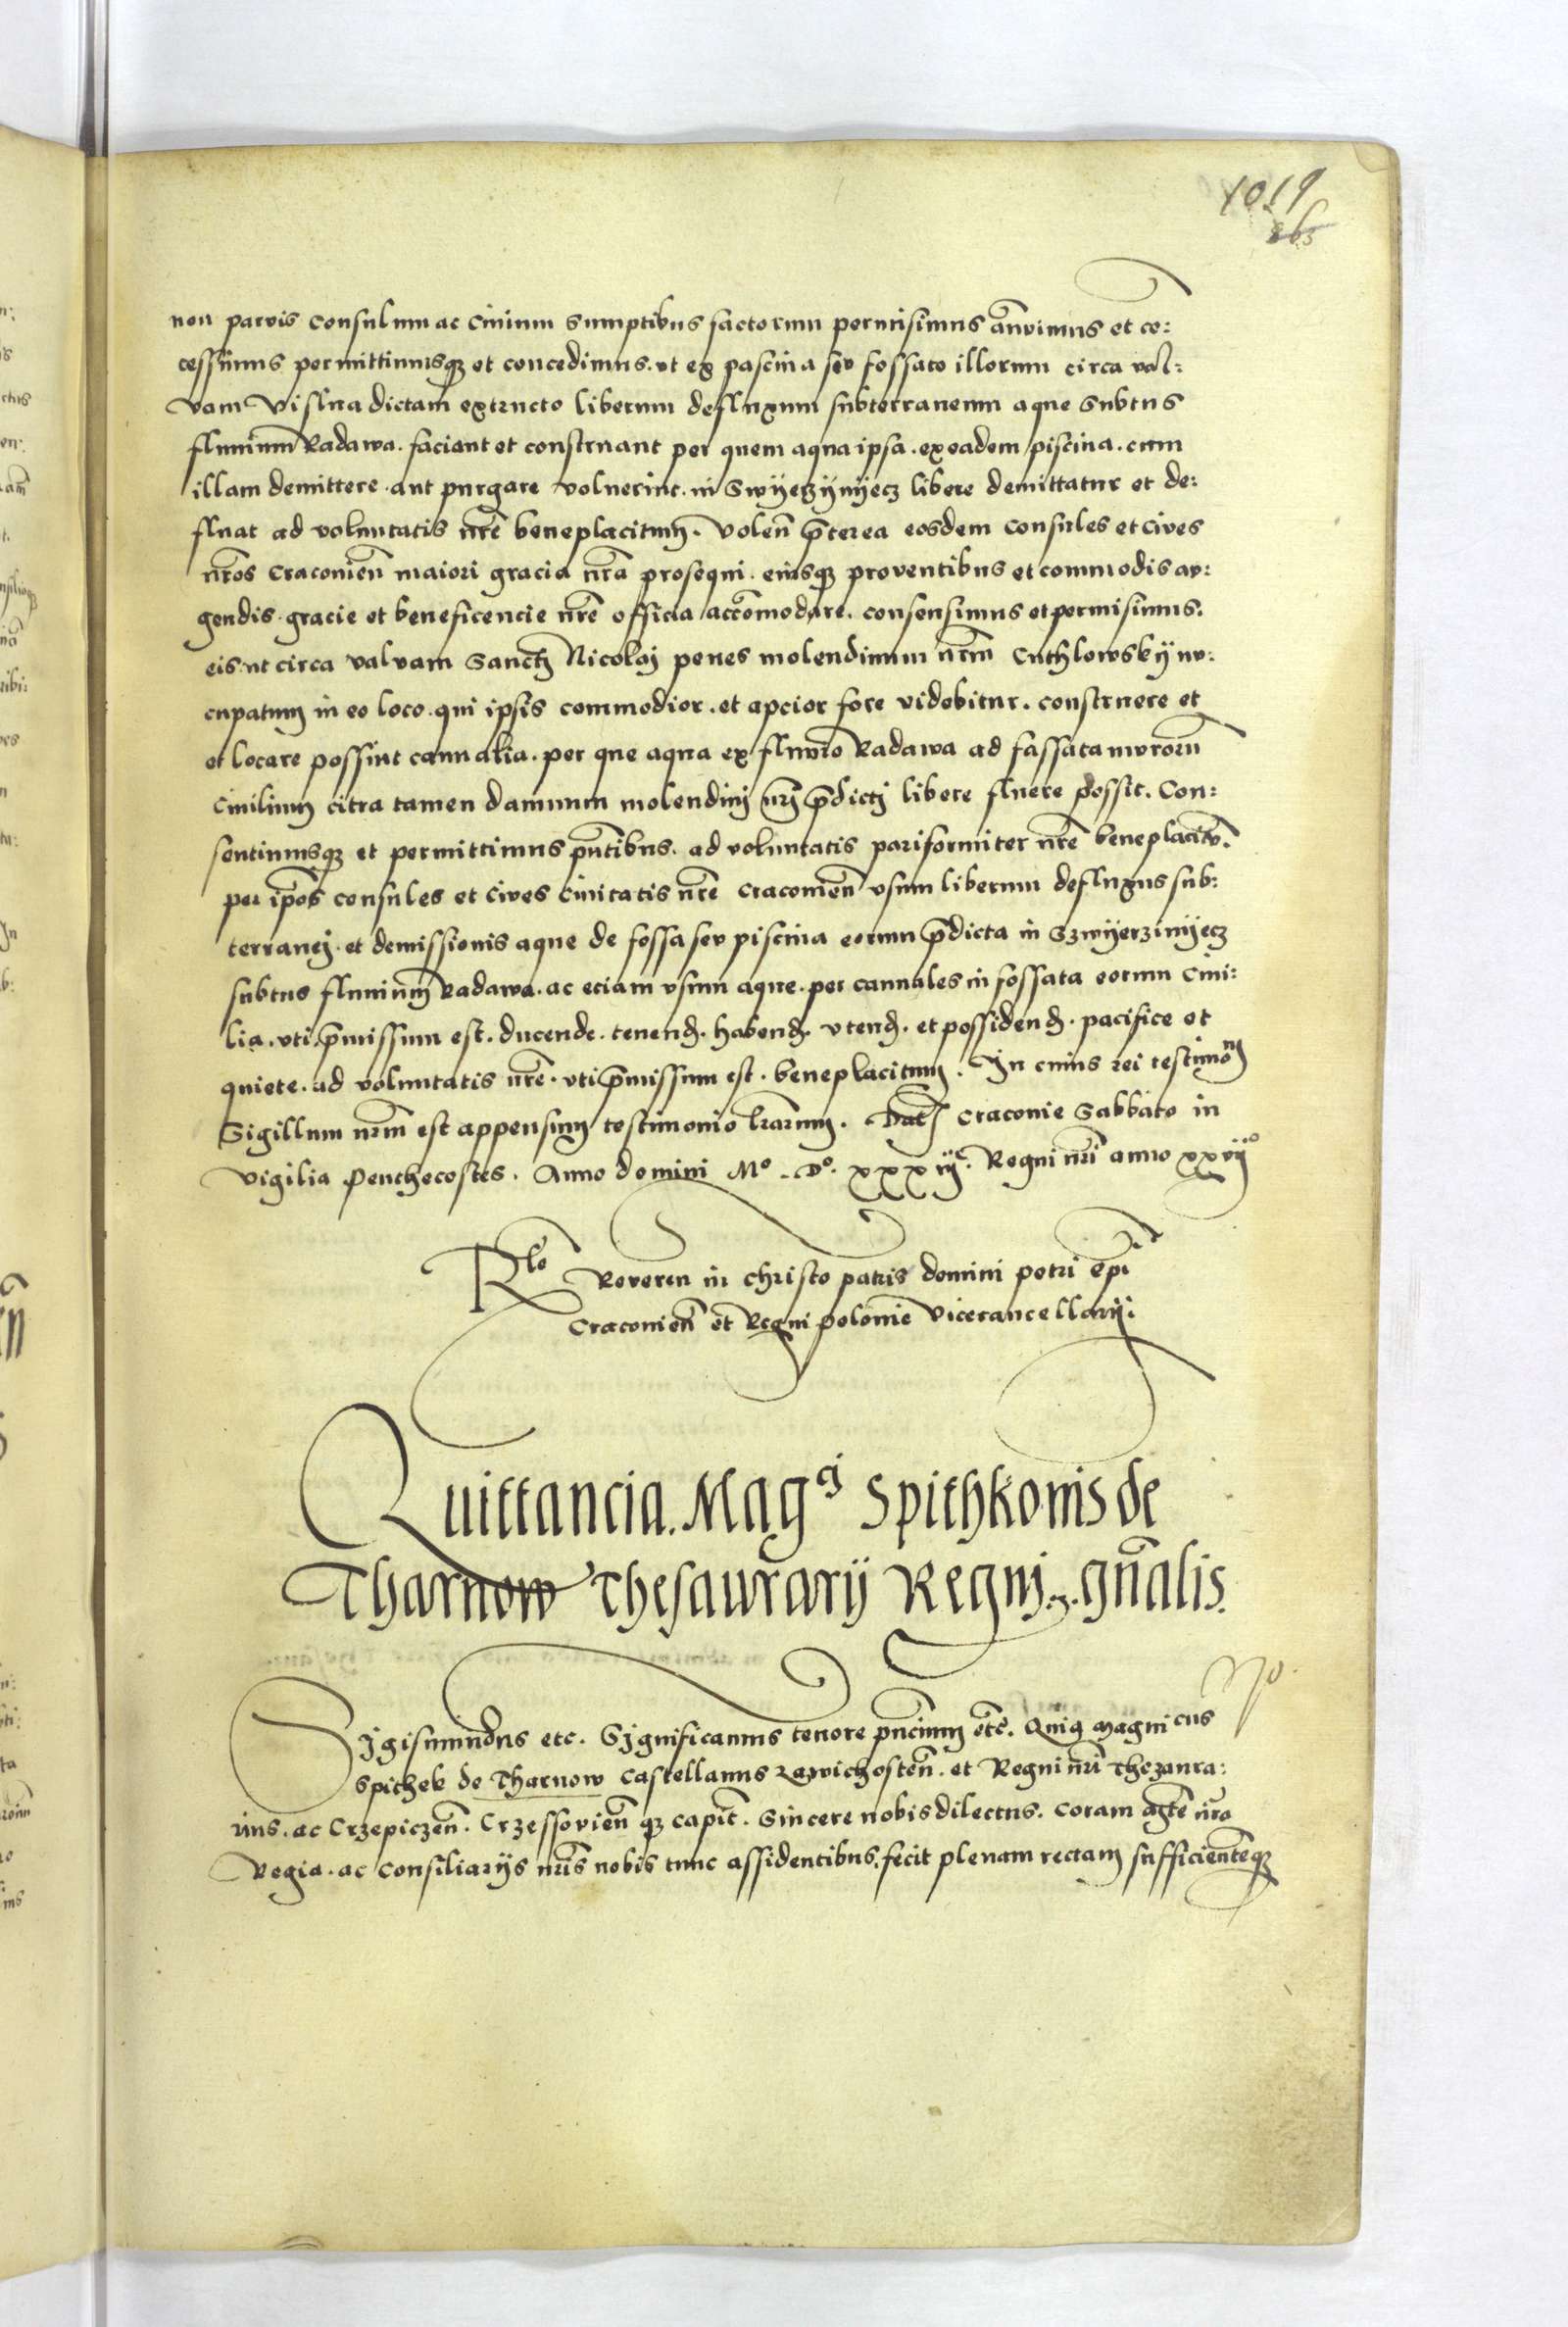 1019
863
non parvis consulum ac civium sumptibus factorum permisimus añuimus et co:
cessimus permittimusqȝ et concedimus. ut ex pascina seu fossato illorum circa val:
vam Visslna dictam extructo liberum defluxum subterraneum aque subtus
fluvium Radawa. faciant et construant per quem aqua ipsa. ex eadem piscina. cum
illam demittere. aut purgare voluerint. in Swyerzynyecz libere demittatur et de:
fluat ad voluntatis nrẽ beneplacitum. Volen̄ p̄terea eosdem consules et cives
nrõs Cracovien̄ maiori gracia nrã prosequi. eiusqȝ proventibus et commodis au:
gendis. gracie et beneficencie nrẽ officia accõmodare. consensimus et permisimus.
eis ut circa valvam Sancti Nicolaj penes molendinum nrm̄ Cuthlowsky nu:
cupatum in eo loco. qui ipsis commodior. et apcior fore videbitur. construere et
et locare possint cannalia. per que aqua ex fluvio Radawa ad fassata murorū
civilium citra tamen damnum molendinj nrj̄ p̄dictj libere fluere possit. Con:
sentimusqȝ et permittimus pn̄tibus. ad voluntatis pariformiter nrẽ beneplacitū.
per ip̄os consules et cives civitatis nrẽ Cracovien̄ usum liberum defluxus sub:
terranej. et demissionis aque de fossa seu piscina eorum p̄dicta in Szwyerzinyecz
subtus fluvium Radawa. ac eciam usum aque. per cannales in fossata eorum civi:
lia. uti p̄missum est. ducende. tenend. habend. utend. et possidend. pacifice et
quiete. ad voluntatis nrẽ. uti p̄missum est. beneplacitum. In cuius rei testimon
Sigillum nrm̄ est appensum testimonio lrarum. Dat Cracovie Sabbato in
vigilia Penthecostes. Anno domini Mº. Dº. xxxiiº. Regni nrĩ anno xxviº
Rlo Reveren in christo patris domini petri ep̄i
Cracovien̄ et Regni polonie Vicecancellarij.
Quittancia. Magci Spithkonis de
Tharnow Thesaurarij Regnj. gn̄alis.
Sigismundus etc. Significamus tenore pn̄cium etc̄. Quiq magnicus
No.
Spithek de Tharnow Castellanus Zawichosten̄. et Regni nrĩ Thezaura:
rius. ac Crzepiczen̄. Crzessovien̄ qȝ capit̄. Sincere nobis dilectus. Coram mgt̄e nrã
Regia. ac Consiliarijs nrĩs nobis tunc assidentibus. fecit plenam rectam sufficientẽqȝ